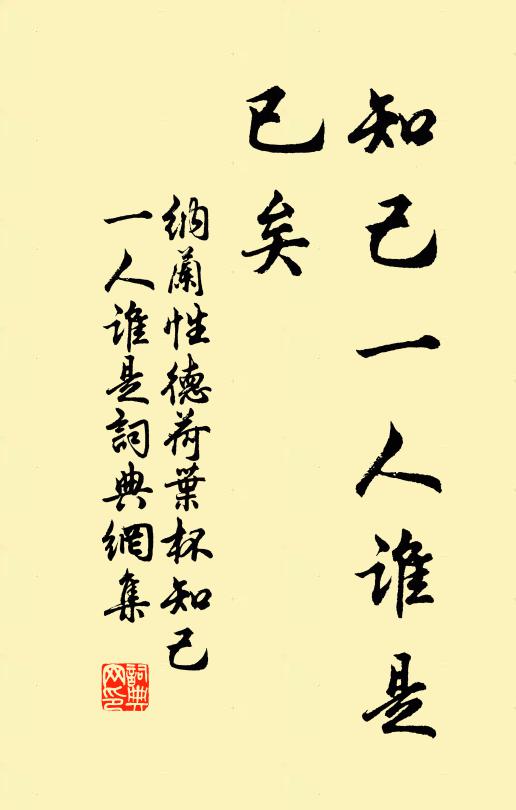 知己一人誰是
已矣
納蘭性德荷葉杯知己
一人誰是詞典網集
詞典
网印